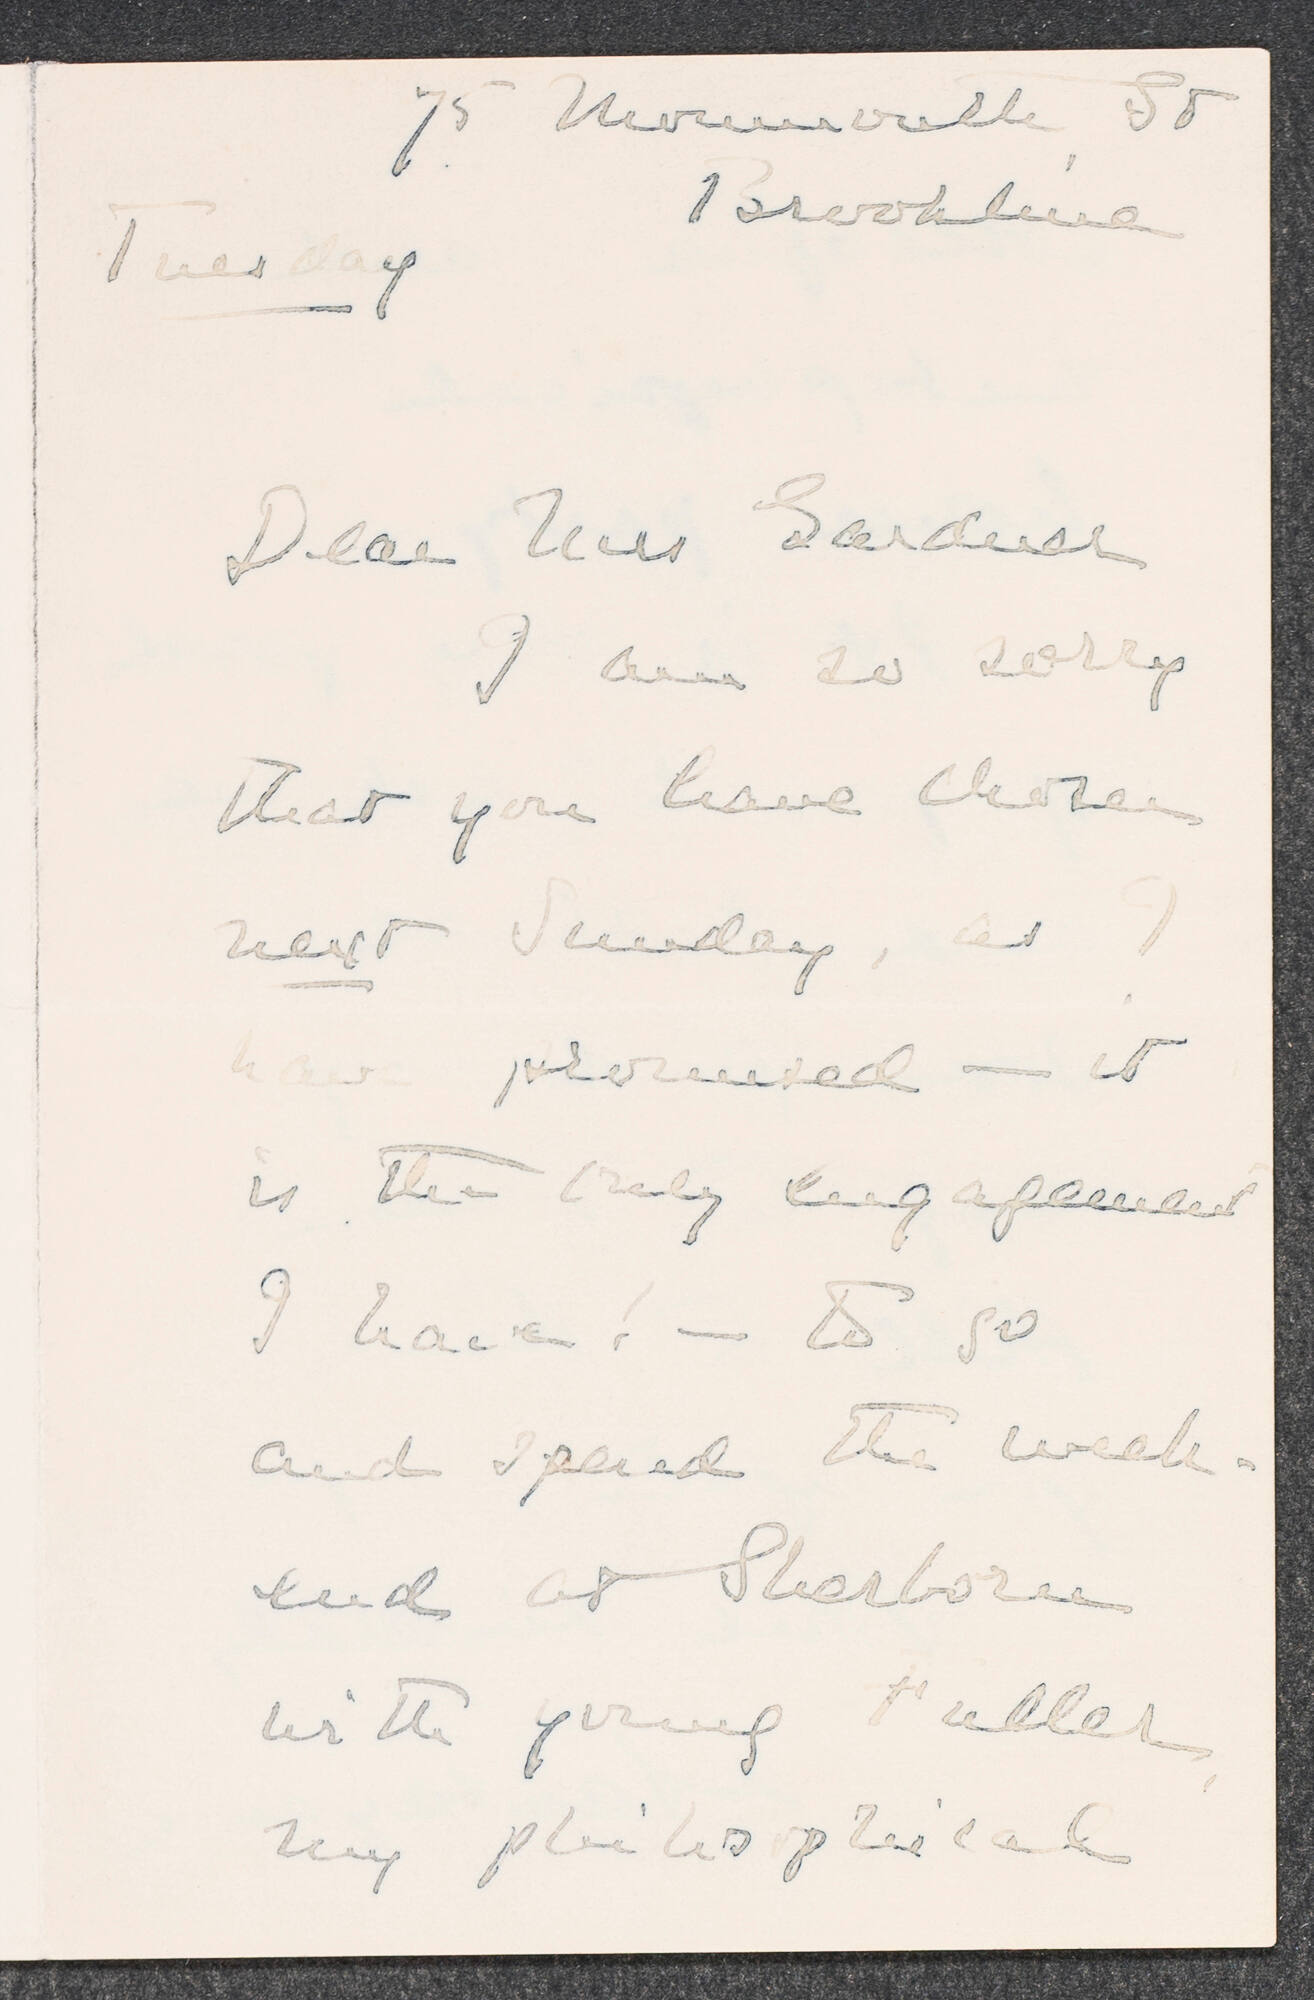 75 Monmouth St
Brookline
Tuesday
Dear Mrs Gardner
I am so sorry
that you have chosen
next Sunday, as I
have promised — it
is the only engagement
I have! — to go
and spend the week-
end at Sherborn
with young Fuller,
my philosophical